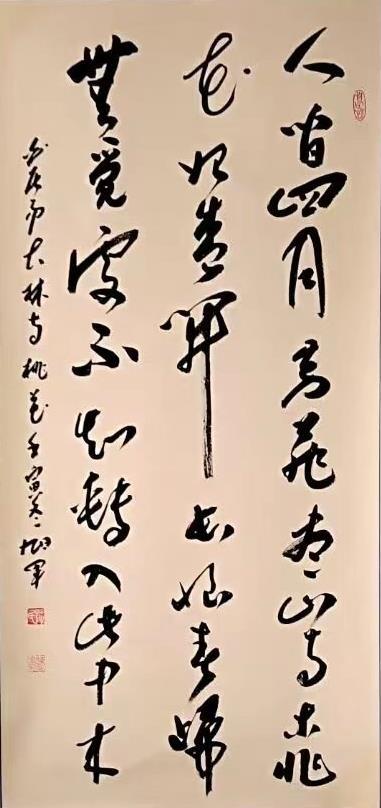 人間四月芳菲盡山寺桃
花始盛開長恨春歸
無覓處不知轉入此中來
白居易大林寺桃花壬寅冬軍